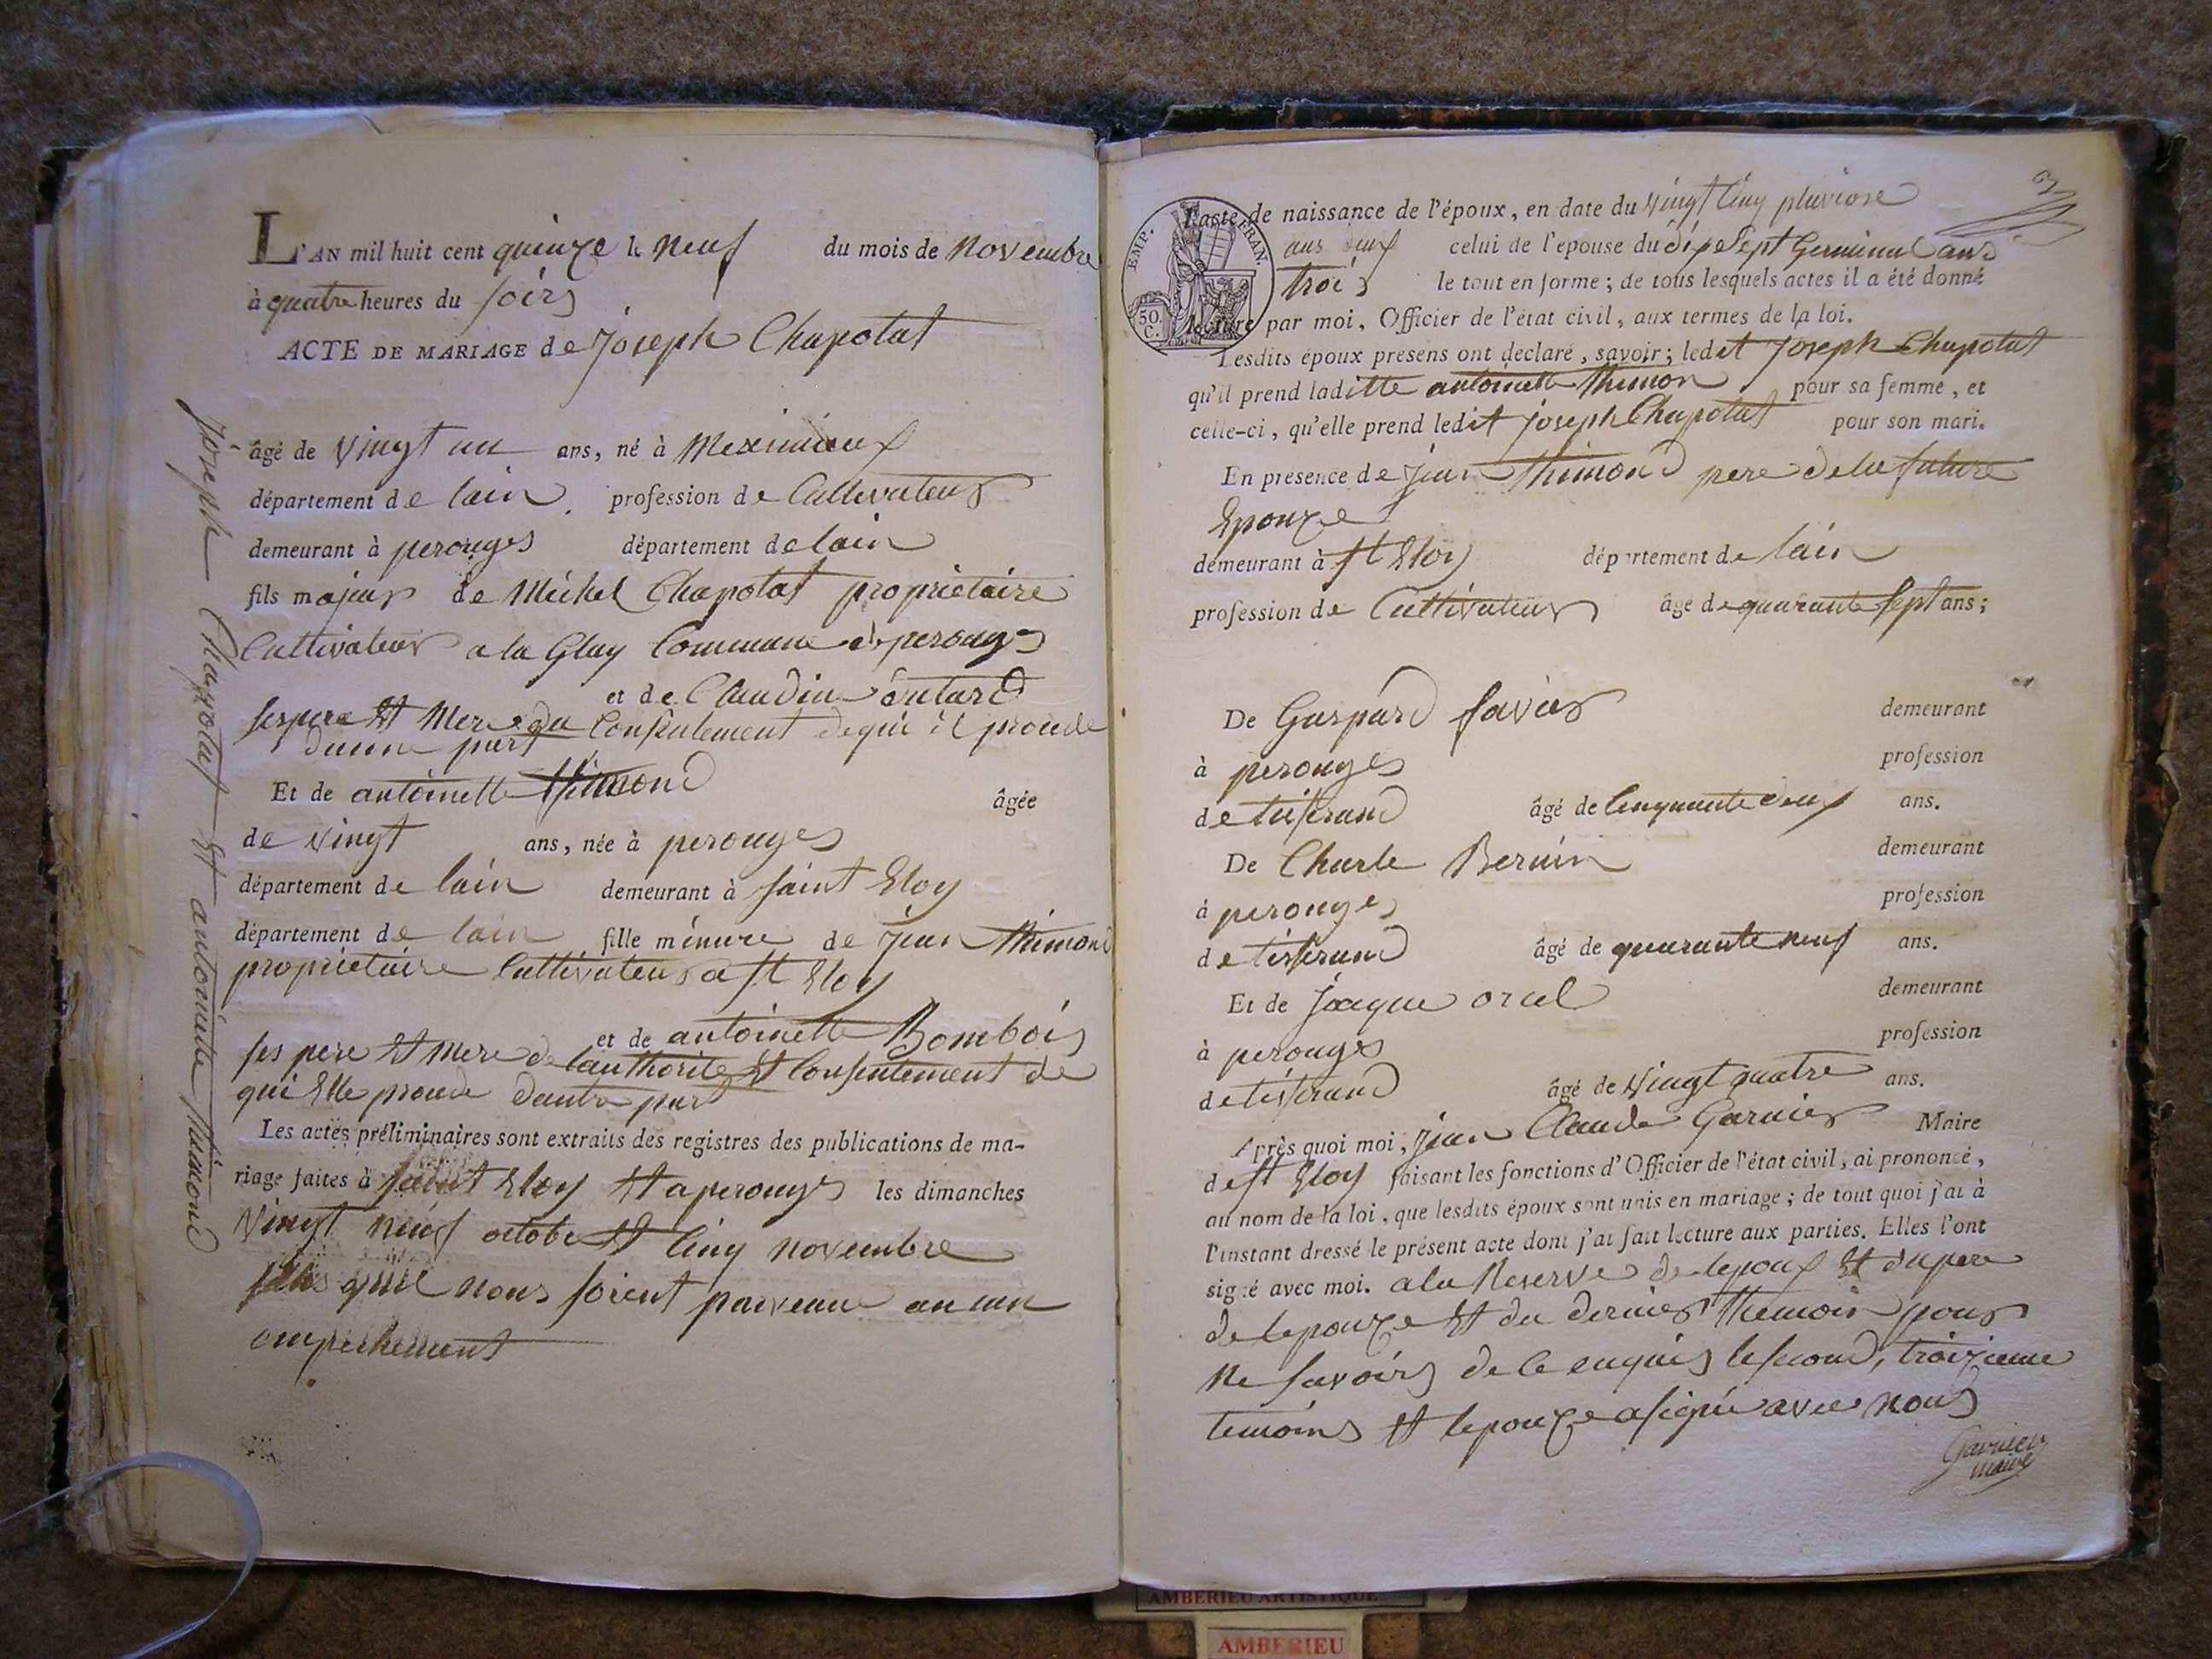 L'AN mil huit cent quinze le neuf du mois de novembre
à quatre heures du soirs
ACTE DE MARIAGE de Joseph Chapotat
âgé de vingt un ans, né à Meximieux
département de lain profession de Cultivateur
demeurant à perouges département de lain
fils majeur de Michel Chapotat propriétaire
Cultivateur a la Glay Commune de perouges
et de Claudine
ses pere et Mere du Consentement de qui il procede
dunne part
Et de antoinette thimond âgée
de vingt ans, née à perouges
département de lain demeurant à saint Eloy
département de lain fille mineure de jean thimond
proprietaire Cultivateur a st Eloy
et de antoinette Bombois
ses pere et mere de lauthorite et Consentement de
qui Elle procede dautre part
Les actes préliminaires sont extraits des registres des publications de ma-
riage faites à saint Eloy et a perouges les dimanches
vingt neuf octobre et cinq novembre
sans quil nous soient parvenu aucun
empechement
joseph Chapotat et antoinette thimond
EMP. FRAN.
50. C.
3
L'acte de naissance de l'époux, en date du vingt cinq pluviose
ans deux celui de l'epouse du dixe sept Germinal ans
trois le tout en forme; de tous lesquels actes il a été donné
lecture par moi, Officier de l'état civil, aux termes de la loi.
Lesdits époux presens ont declaré, savoir; ledit Joseph Chapotat
qu'il prend laditte antoinette thimon pour sa femme, et
celle-ci, qu'elle prend ledit joseph Chapotat pour son mari.
En presence de jean thimond pere de la future
Epouze
demeurant à st Eloy département de lain
profession de Cultivateur âgé de quarante sept ans;
De Gaspard favier demeurant
à perouges profession
de tisserand âgé de cinquante deux ans.
De Charle Bernin demeurant
à perouges profession
de tisserand âgé de quarante neuf ans.
Et de jacque orcel demeurant
à perouges profession
de tisserand âgé de vingt quatre ans.
Après quoi moi, jean Claude Garnier Maire
de st Eloy faisant les fonctions d'Officier de l'état civil, ai prononcé,
au nom de la loi, que lesdits époux sont unis en mariage; de tout quoi j'ai à
l'instant dressé le présent acte dont j'ai fait lecture aux parties. Elles l'ont
signé avec moi. a la Reserve de lepoux et du pere
de lepouze et du dernier themoin pour
ne savoirs de ce enquis le second, troizieme
temoins et lepouze a signé avec nous
Garnier
maire
AMBERIEU ARTISTIQUE
AMBERIEU